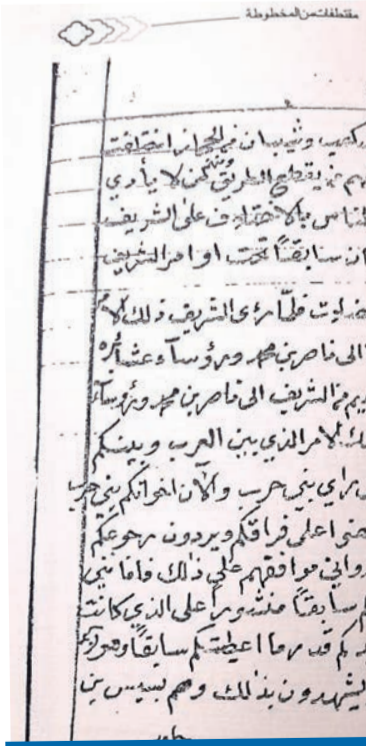 مقتطفات من المخطوطة
وشيبان في الحجاز
هم من يقطع الطريق ومنهم من لا يأدي
الناس بالاختلاف على الشريف
ان سابقاً تحت اوامر الشريف
فلما رؤى الشريف ذلك الامر
الى ناصر بن محمد ورؤساء عشائره
من الشريف الى ناصر بن محمد ورؤساء
الامر الذي بين العرب وبينكم
براي بني حرب والآن اخوانكم بني حرب
على فراقكم ويردون رجوعكم
واني موافقهم على ذلك وانا مني
سابقاً منشوراً على الذي كانت
كم قد ما اعطيتكم سابقاً وهولاء
يشهدون بذلك وهم بسيس بن